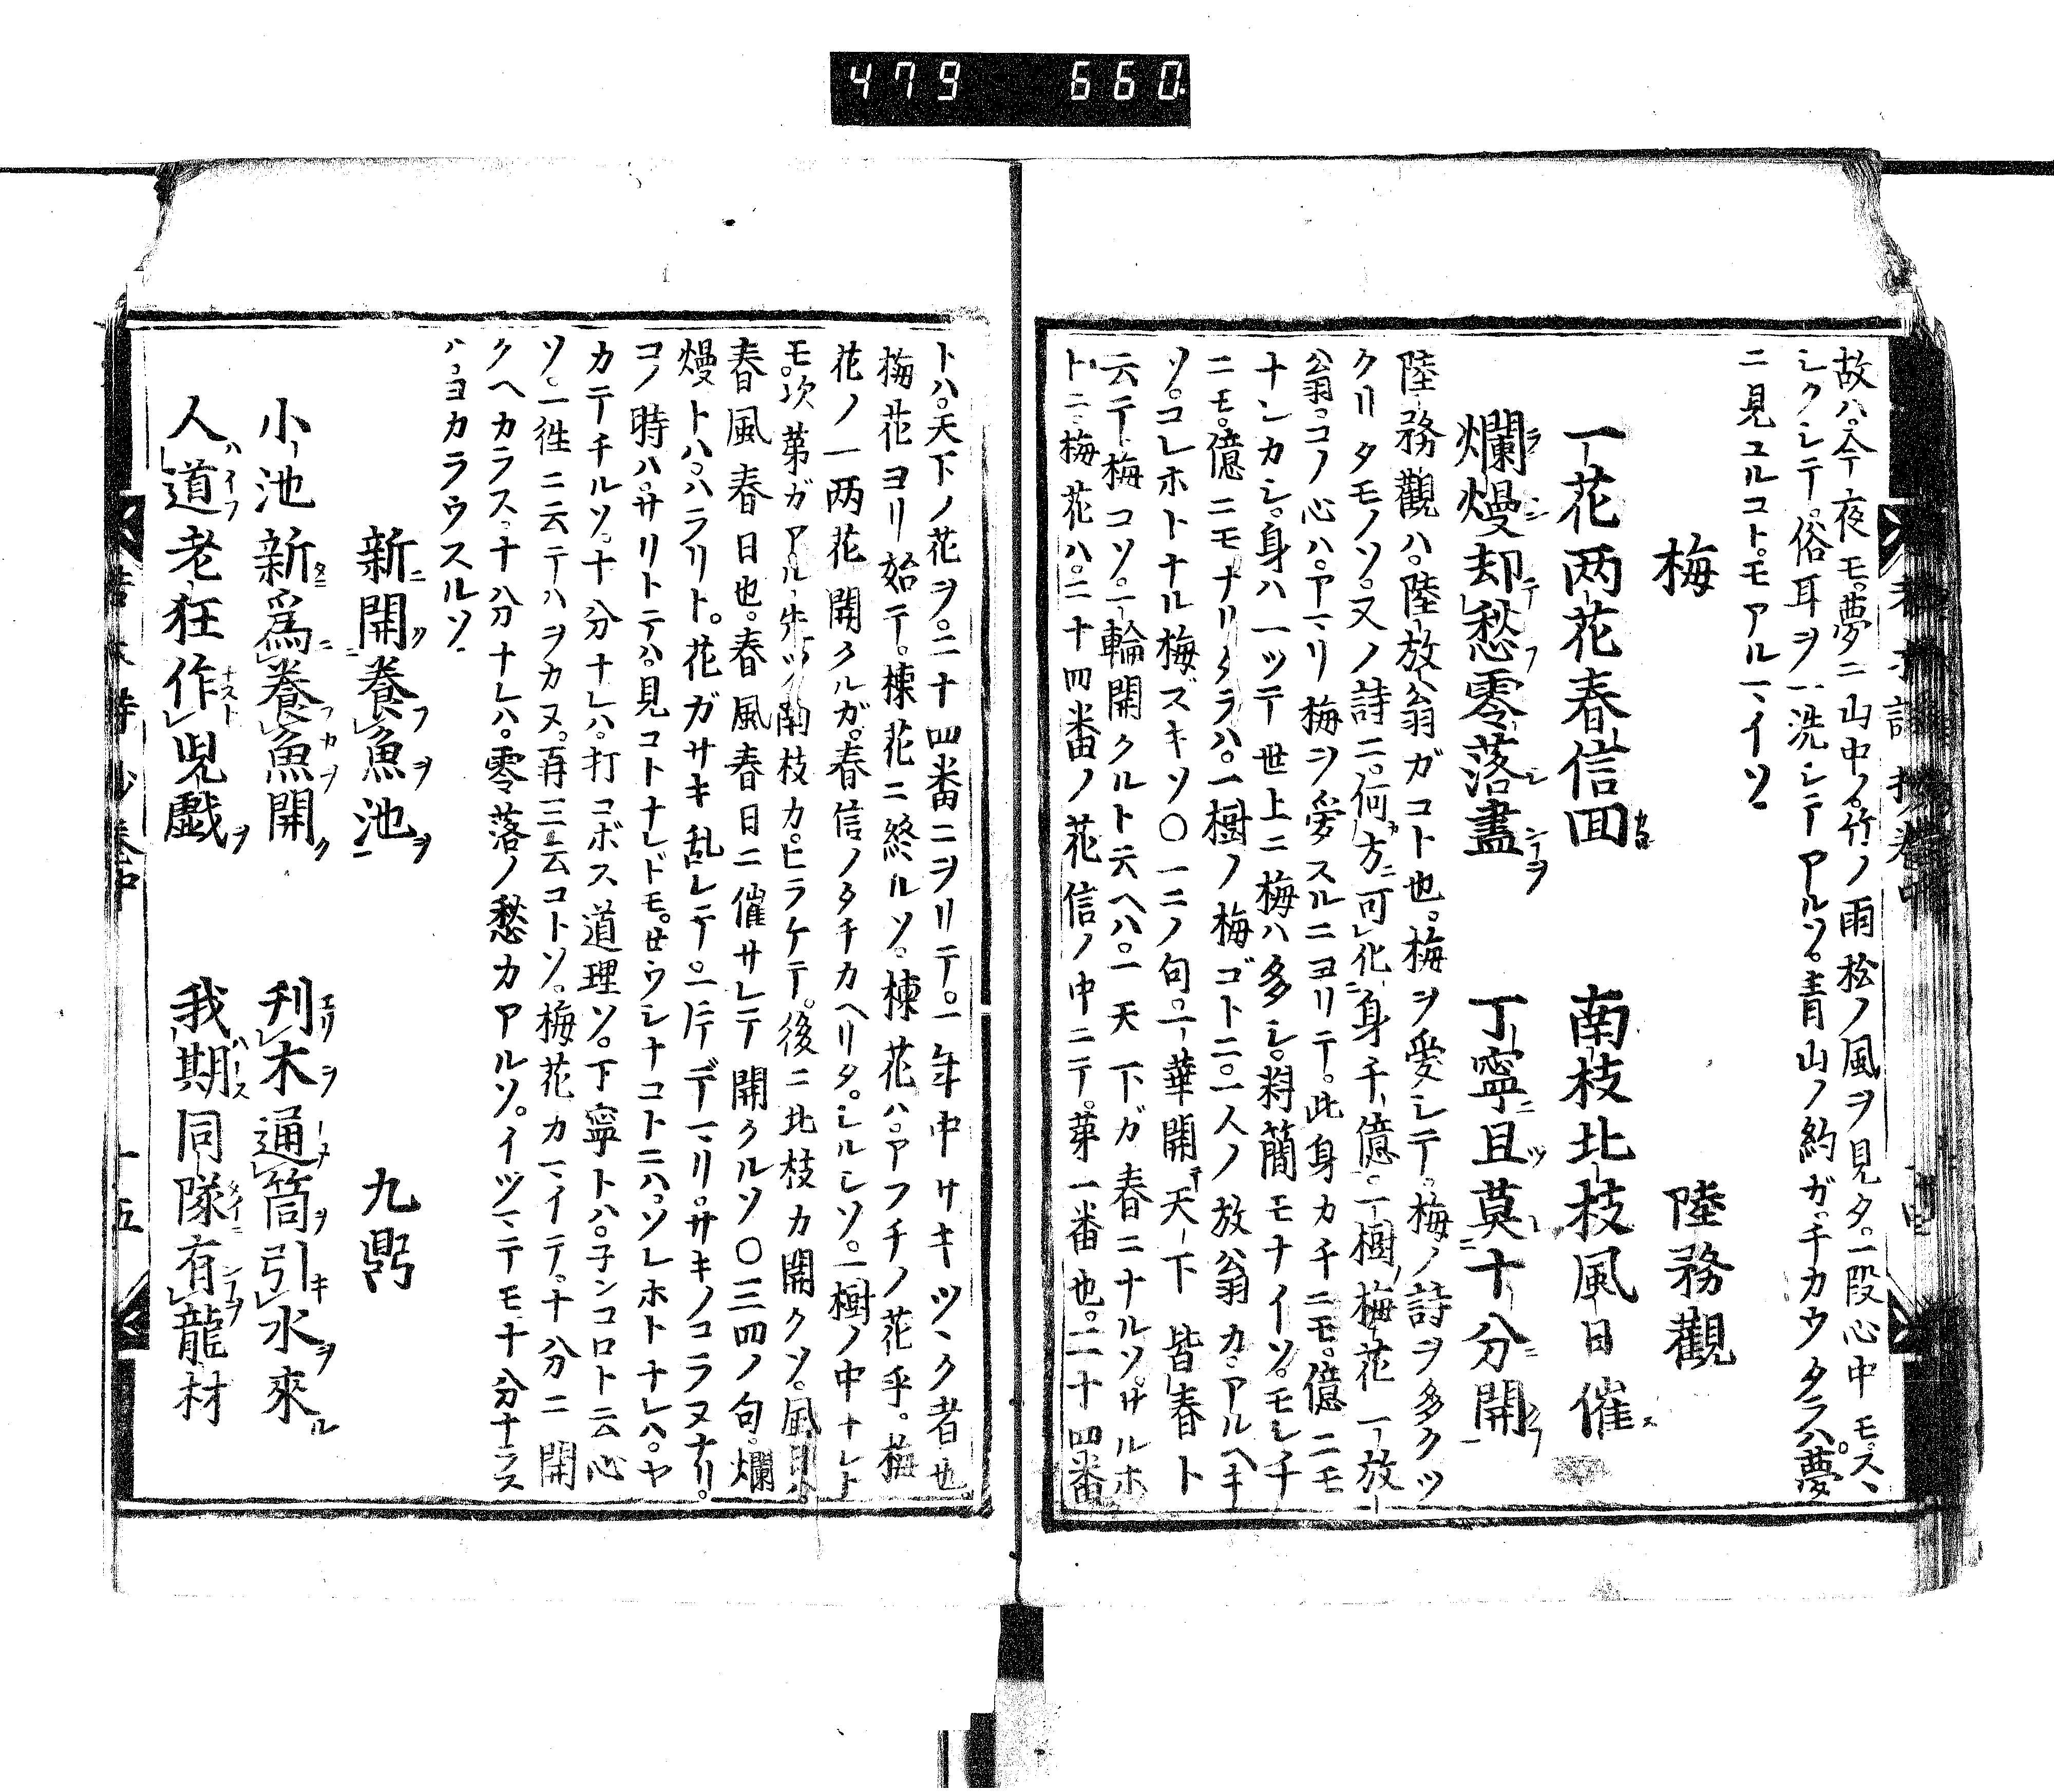 479 660
故ハ。今夜モ。夢ニ山中ノ。竹ノ雨松ノ風ヲ見タ。一段心中モ。スヽ
シクシテ。俗耳ヲ一洗シテアルソ。青山ノ約ガ。チカウタラハ。夢
ニ見ユルコト。モアルマイソ。
梅 陸務觀
一花两花春信回 南枝北枝風日催
爛熳却愁零落盡 丁寧且莫十分開
陸務觀ハ。陸放翁ガコト也。梅ヲ愛シテ。梅ノ詩ヲ多クツ
クリタモノソ。又ノ詩ニ。何方可化身千億。一樹梅花一放
翁。コノ心ハ。アマリ梅ヲ愛スルニヨリテ。此身カチニモ。億ニモ
ナシカシ。身ハ一ツテ世上ニ梅ハ多シ。料簡モナイソ。モシチ
ニモ。億ニモナリタラハ。一樹ノ梅ゴトニ。一人ノ放翁カアルヘキ
ソ。コレホトナル梅ズキソ〇一二ノ句。一華開天下皆春ト
云テ梅コソ。一輪開クルト云ヘハ。一天下ガ春ニナルソ。サルホ
トニ梅花ハ。二十四番ノ花信ノ中ニテ。第一番也。二十四番
トハ。天下ノ花ヲ。二十四番ニヲリテ。一年中サキツヽク者也
梅花ヨリ始テ。楝花ニ終ルソ。楝花ハ。アフチノ花乎。梅
花ノ一两花開クルガ。春信ノタチカヘリタ。シルシソ。一樹ノ中ナレト
モ。次第ガアル先ツ南枝カ。ヒラケテ。後ニ北枝カ開クソ。風日ハ。
春風春日也。春風春日ニ催サレテ開クルソ〇三四ノ句。爛
熳トハ。ハラリト。花ガサキ乱レテ。一片デマリ。サキノコラヌナリ。
コノ時ハ。サリトテハ。見コトナレドモ。せウシナコトニハ。ソレホトナレハ。ヤ
カテチルソ。十分ナレハ。打コボス道理ソ。丁寧トハ。子ンコロト云心
ソ。一徃ニ云テハヲカヌ。再三云コトソ。梅花カマイテ。十分ニ開
クヘカラス。十分ナレハ。零落ノ愁カアルソ。イツマテモ十分ナラス
ハヨカラウスルソ
新開養魚池 九鼎
小池新爲養魚開 刋木通筒引水來
人道老狂作児戯 我期同隊有龍材
十五